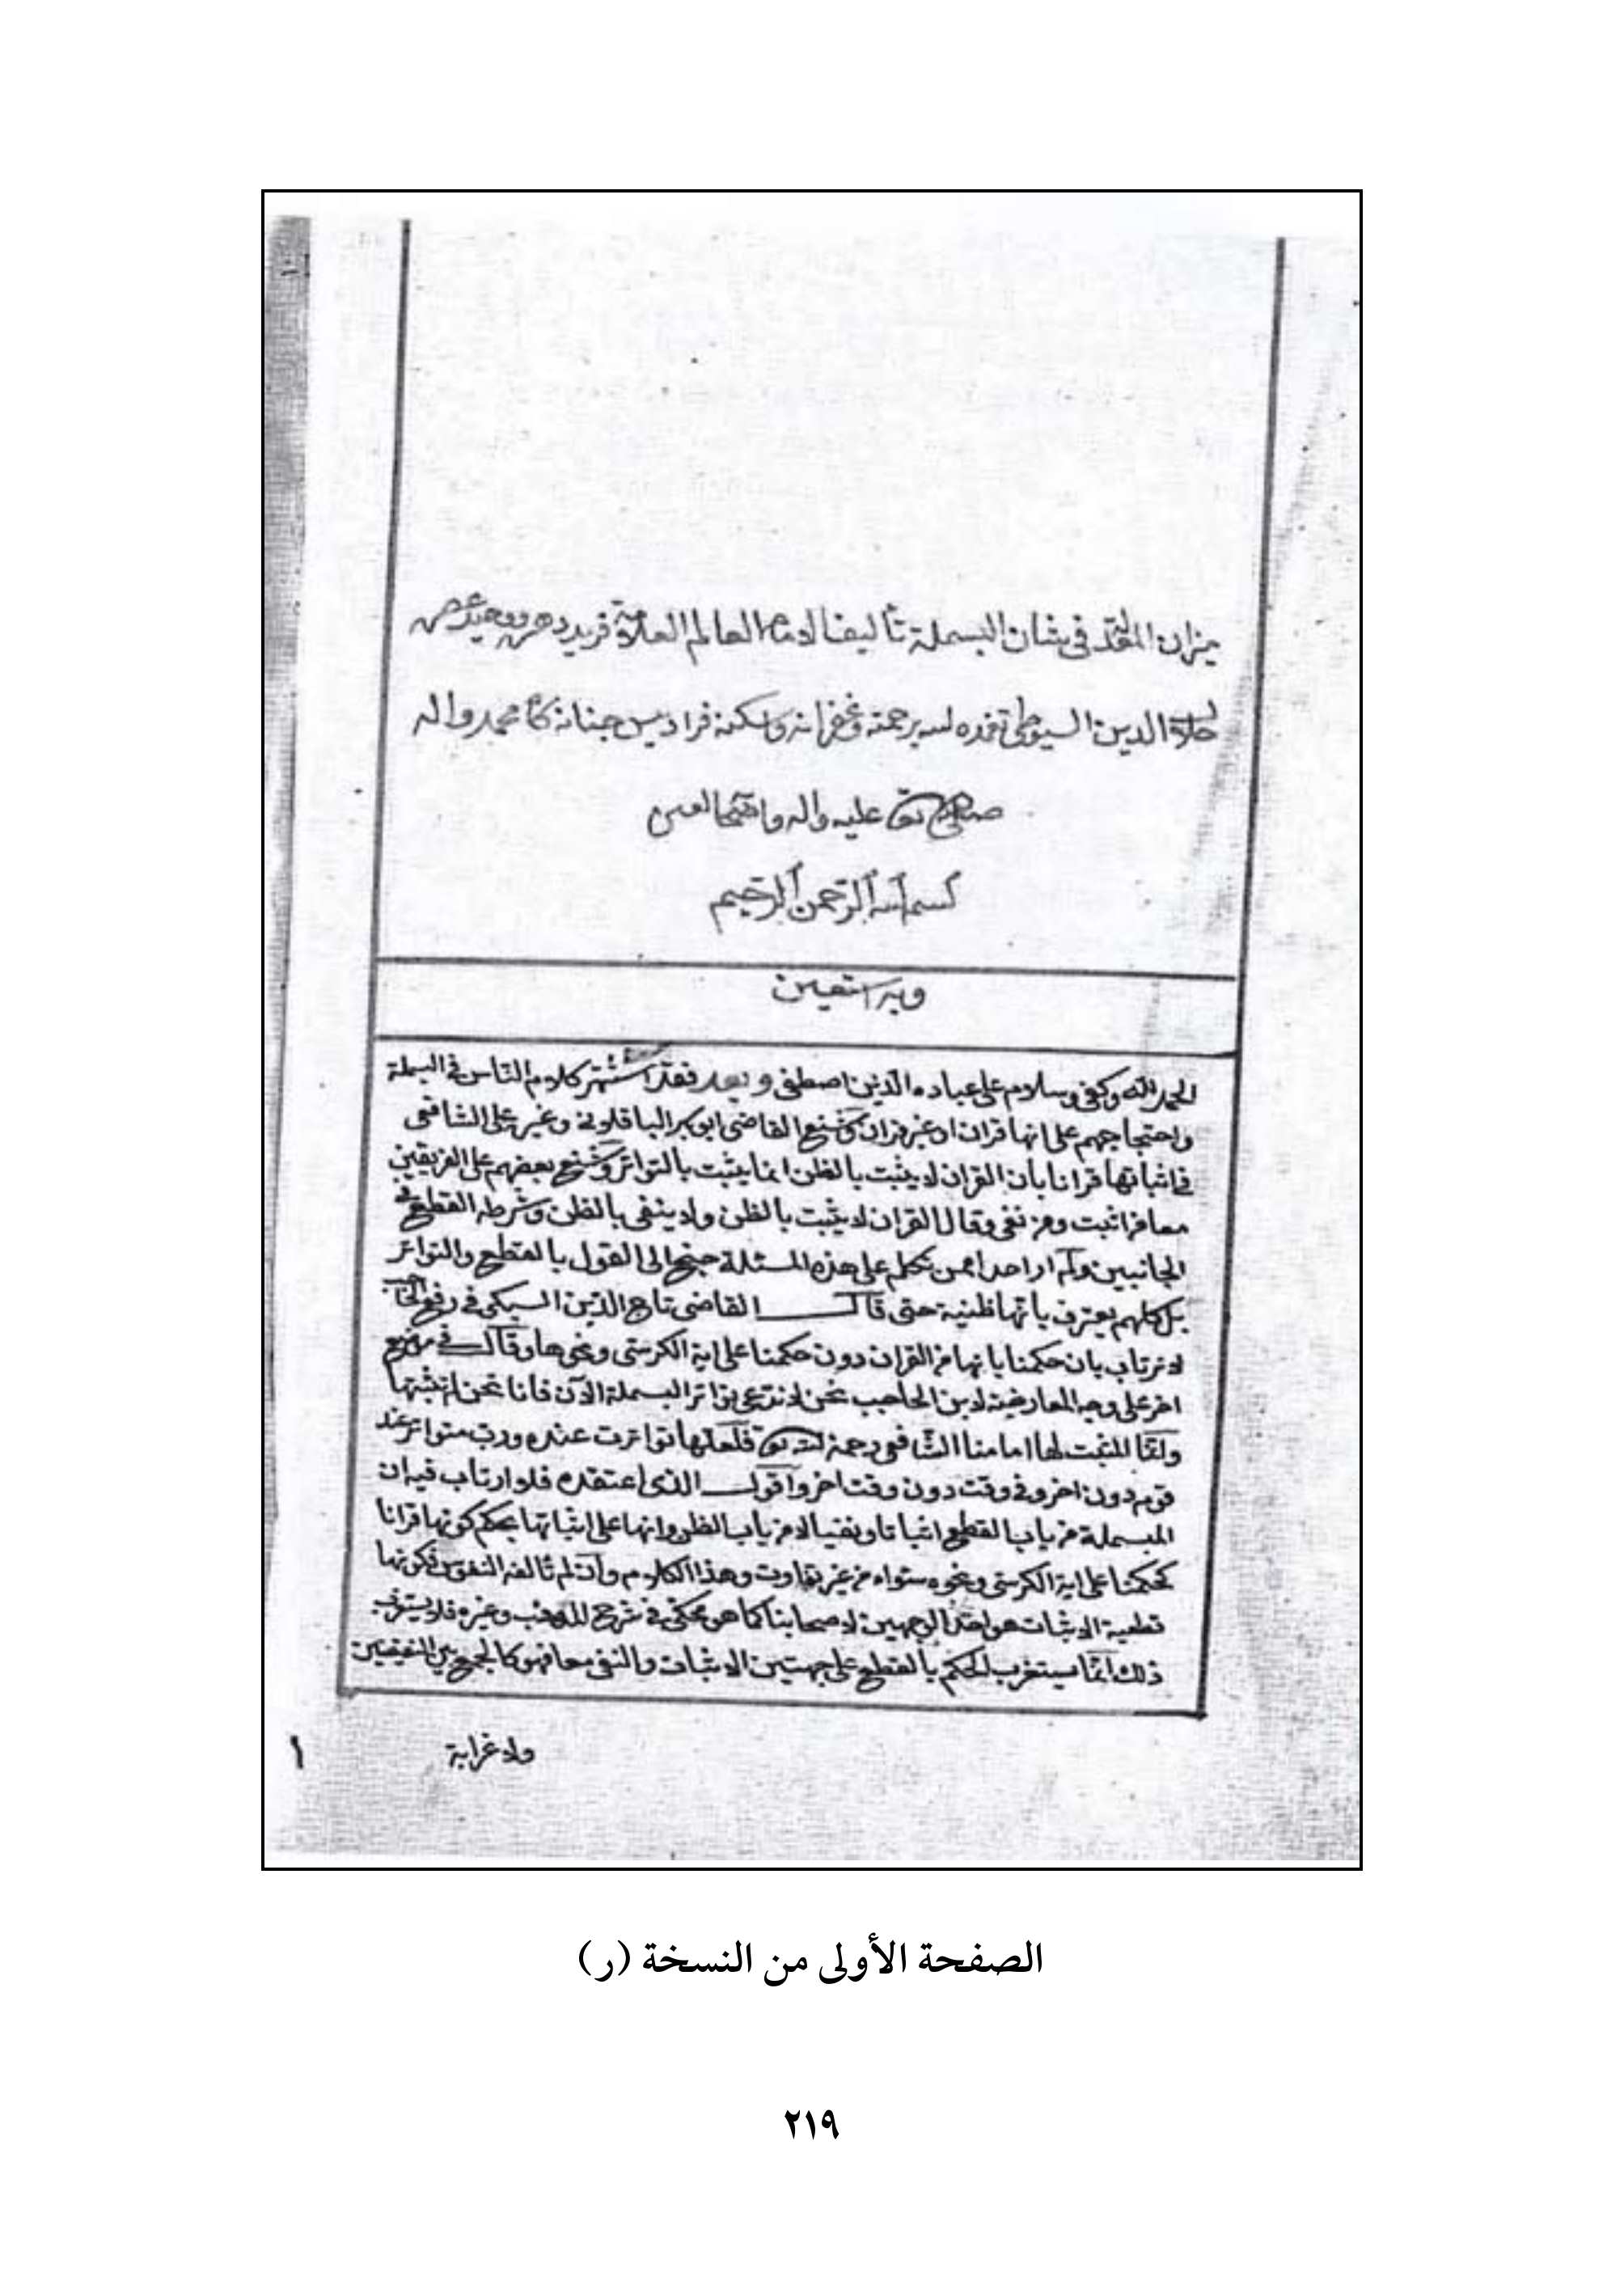 ميزان المعدلة في شان البسملة تأليف الامام العالم العلامة فريد دهره ووحيد عصره
جلال الدين السيوطي تغمده الله برحمته وغفرانه واسكنه فراديس جنانه بمحمد واله
صلى الله تعالى عليه واله واصحابه اجمعين
بسم الله الرحمن الرحيم
وبه استعين
الحمد لله وكفى وسلام على عباده الذين اصطفى وبعد فقد اشتهر كلام الناس في البسملة
واحتجاجهم على انها قران او غير قران وشنع القاضي ابو بكر الباقلاني وغيره على الشافعي
في اثباتها قرانا بأن القران لا يثبت بالظن انما يثبت بالتواتر وشنع بعضهم على الفريقين
معا من اثبت ومن نفى وقال القران لا يثبت بالظن ولا ينفى بالظن وشرطه القطع في
الجانبين ولم ار احدا ممن تكلم على هذه المسئلة جنح الى القول بالقطع والتواتر
بل كلهم يعترف بانها ظنية حتى قال القاضي تاج الدين السبكي في رفع الحاجب
لا نرتاب بان حكمنا بانها من القران دون حكمنا على اية الكرسي ونحوها وقال في موضع
اخر على وجه المعارضة لابن الحاجب نحن لا ندعي تواتر البسملة الآن فانا نحن لم نثبتها
وانما المثبت لها امامنا الشافعي رحمة الله تعالى فلعلها تواترت عنده ورب متواتر عند
قوم دون اخر وفي وقت دون وقت اخر واقول الذي اعتقده فلا ارتاب فيه ان
البسملة من باب القطع اثباتا ونفيا لا من باب الظن وانها على اثباتها يحكم كونها قرانا
كحكمنا على اية الكرسي ونحوه سواء من غير تفاوت وهذا الكلام وان لم تالفه النفوس فكونها
قطعية الاثبات هو احد الوجهين لاصحابنا كما هو محكي في شرح المهذب وغيره فلا يستغرب
ذلك انما يستغرب الحكم بالقطع على جهتين الاثبات والنفي معا فهو كالجمع بين النقيضين
ولا غرابة
١
الصفحة الأولى من النسخة (ر)
٢١٩